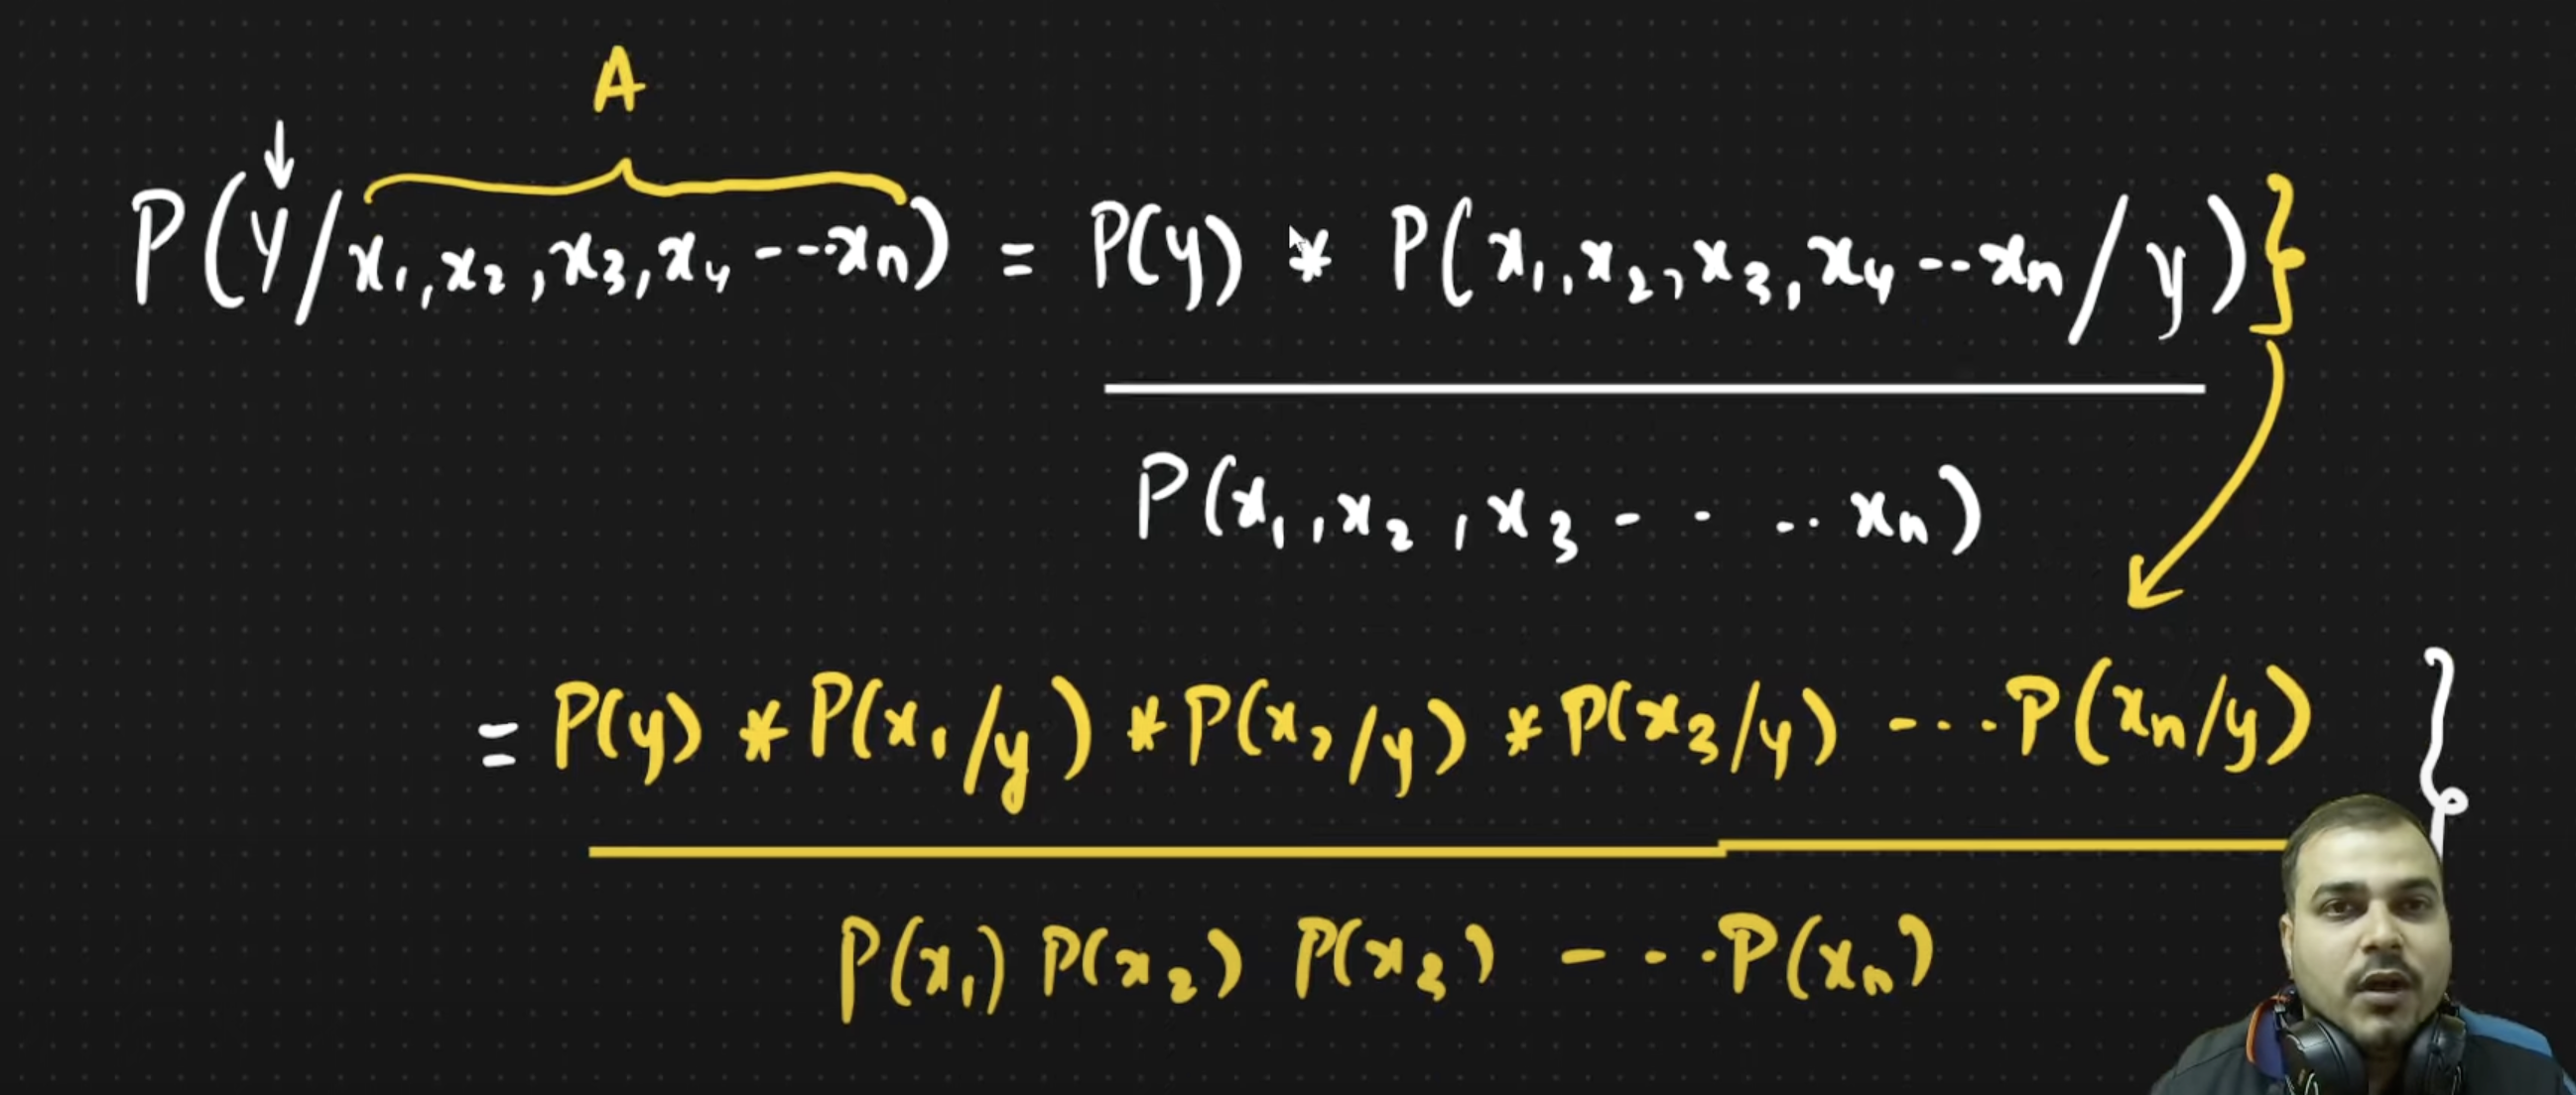 A
P(y/x₁,x₂,x₃,x₄---xₙ) = P(y) * P(x₁,x₂,x₃,x₄--xₙ/y)}
P(x₁,x₂,x₃- - -..xₙ)
= P(y) * P(x₁/y) * P(x₂/y) * P(x₃/y) ---.P(xₙ/y) }
P(x₁) P(x₂) P(x₃) - --.P(xₙ)